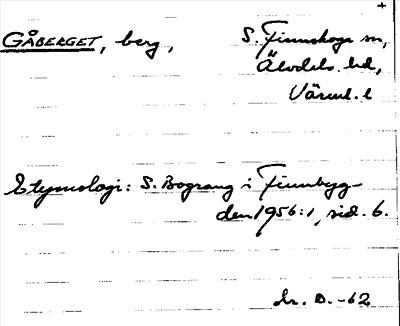 GÅBERGET, berg, S. Finnskoga sn,
Älvdals hd,
Värml. l
Etymologi: S. Bograng i Finnbyg-
den 1956:1, sid. 6.
D. -62